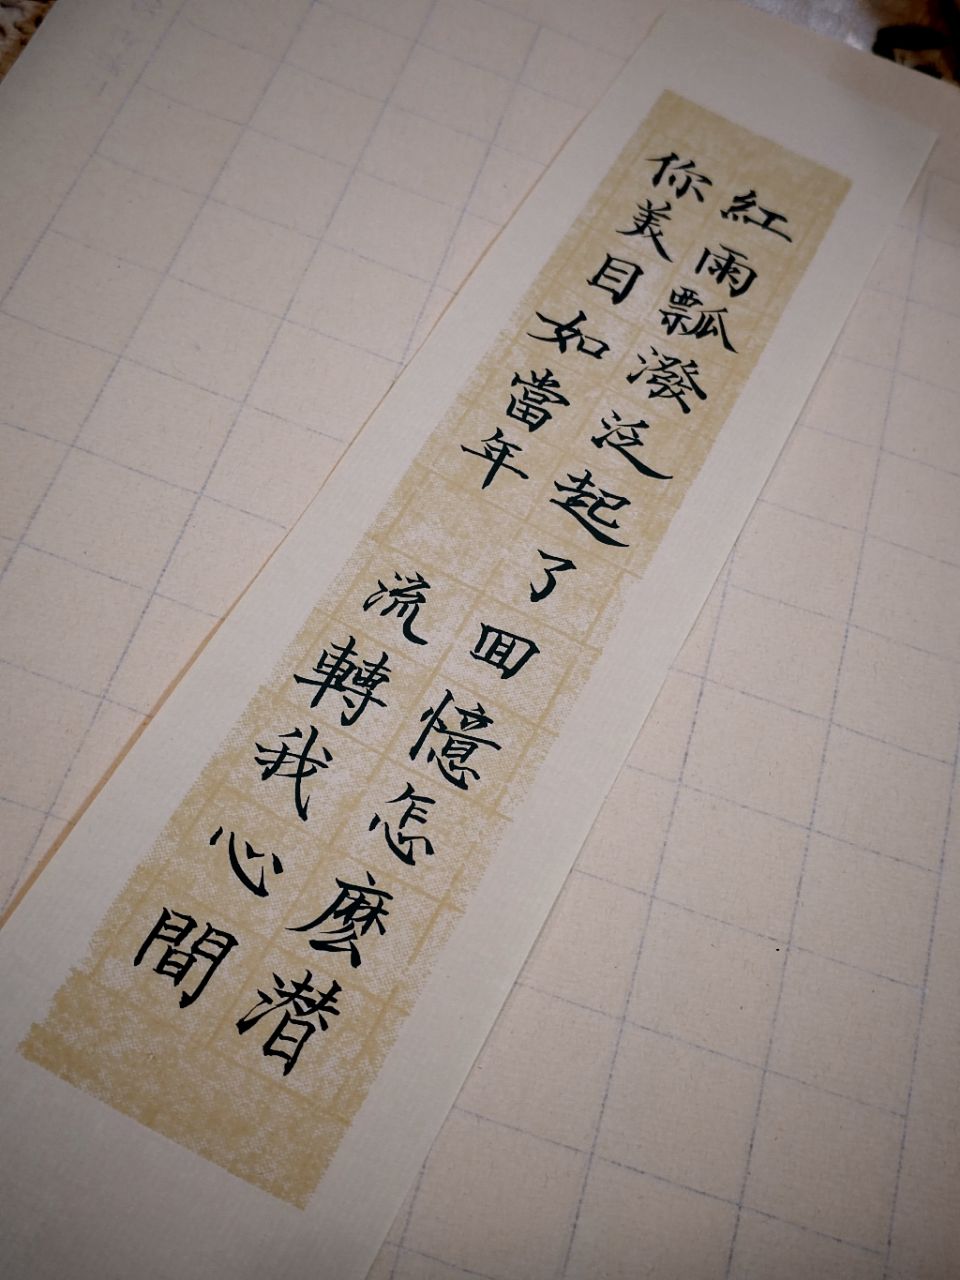 紅雨瓢潑泛起了回憶怎麼潛
你美目如當年 流轉我心間